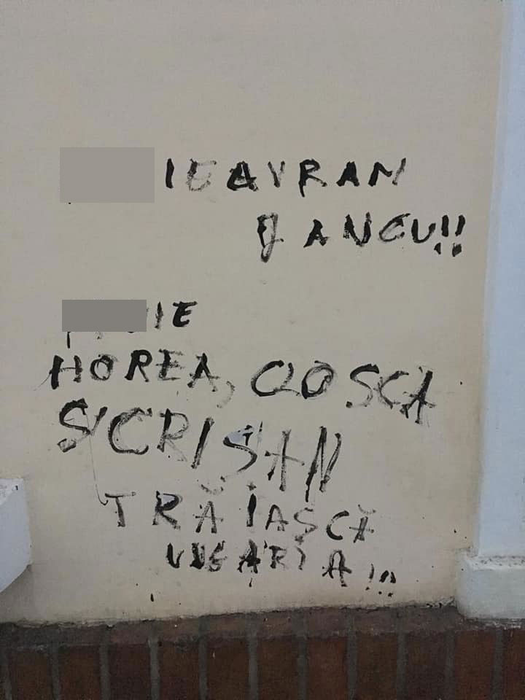 IE AVRAM
IANCU!!
IE
HOREA, CLOSCA
SI CRIȘAN
TRĂIASCĂ
UNGARIA!!!